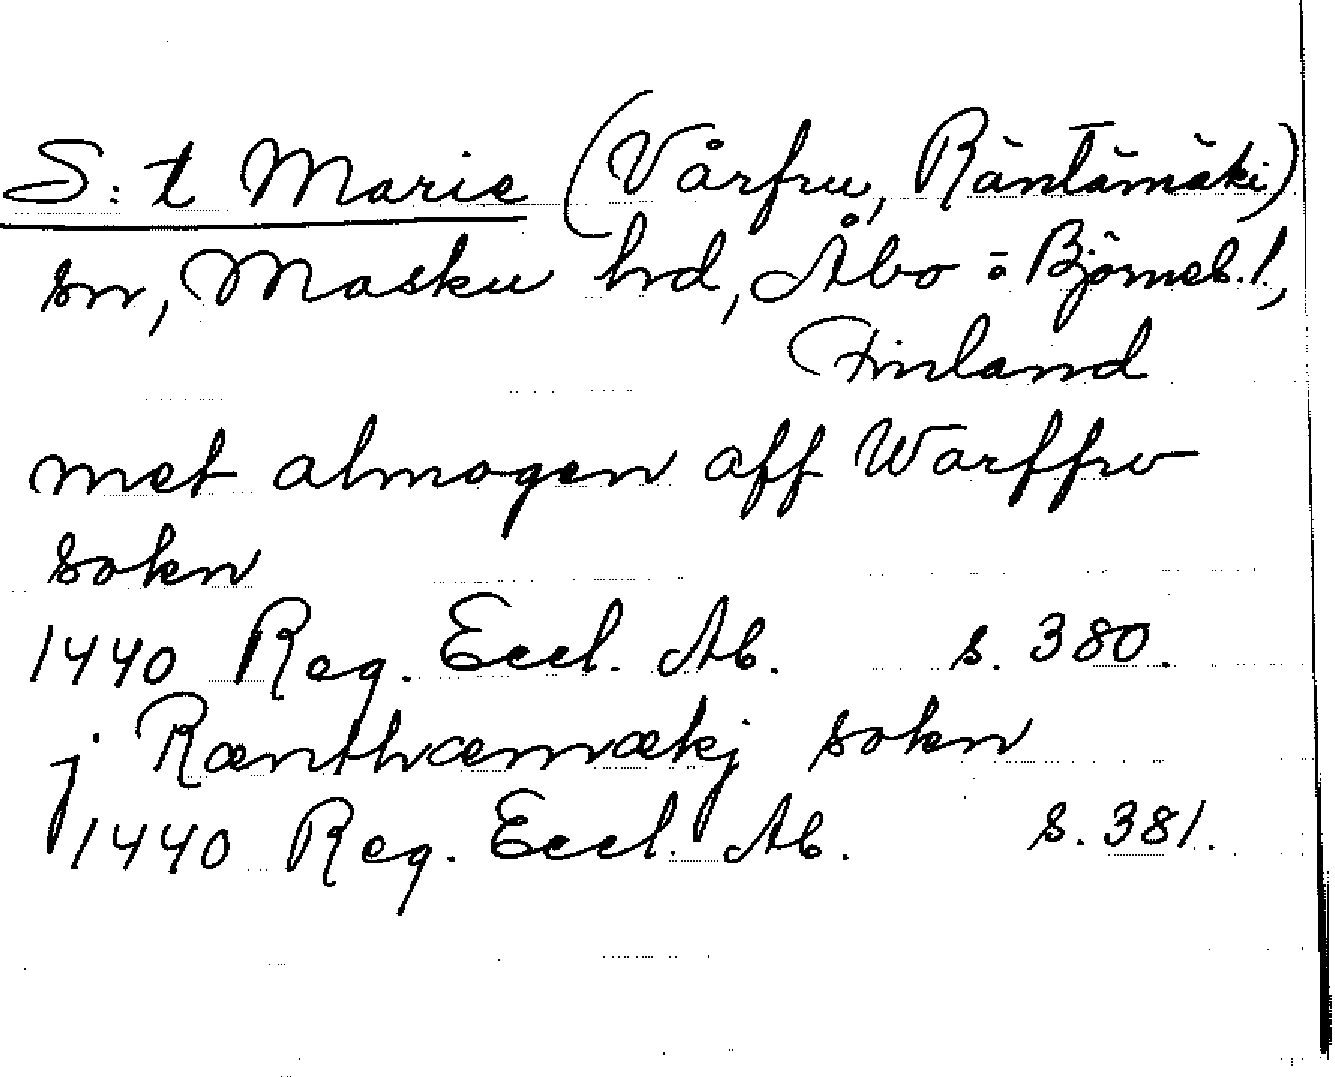 S:t Marie (Vårfru, Räntämäki)
sn, Masku hd, Åbo o Björneb. l.,
Finland
met almogen aff Warffrv
sokn
1440 Reg. Eccl. Ab. s. 380.
j Rænthæmækj sokn
1440 Reg. Eccl. Ab. s. 381.